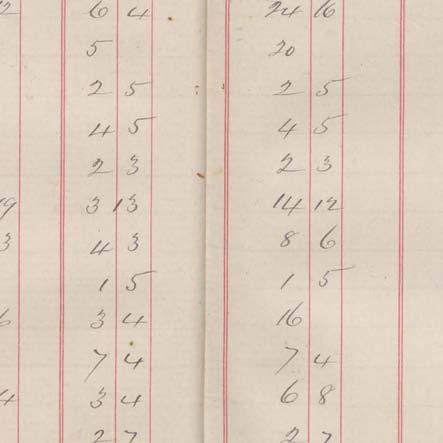 2 6 4 24 16
5 20
2 5 2 5
4 5 4 5
2 3 2 3
19 3 13 14 12
3 4 3 8 6
1 5 1 5
6 3 4 16
7 4 7 4
4 3 4 6 8
2 7 2 7